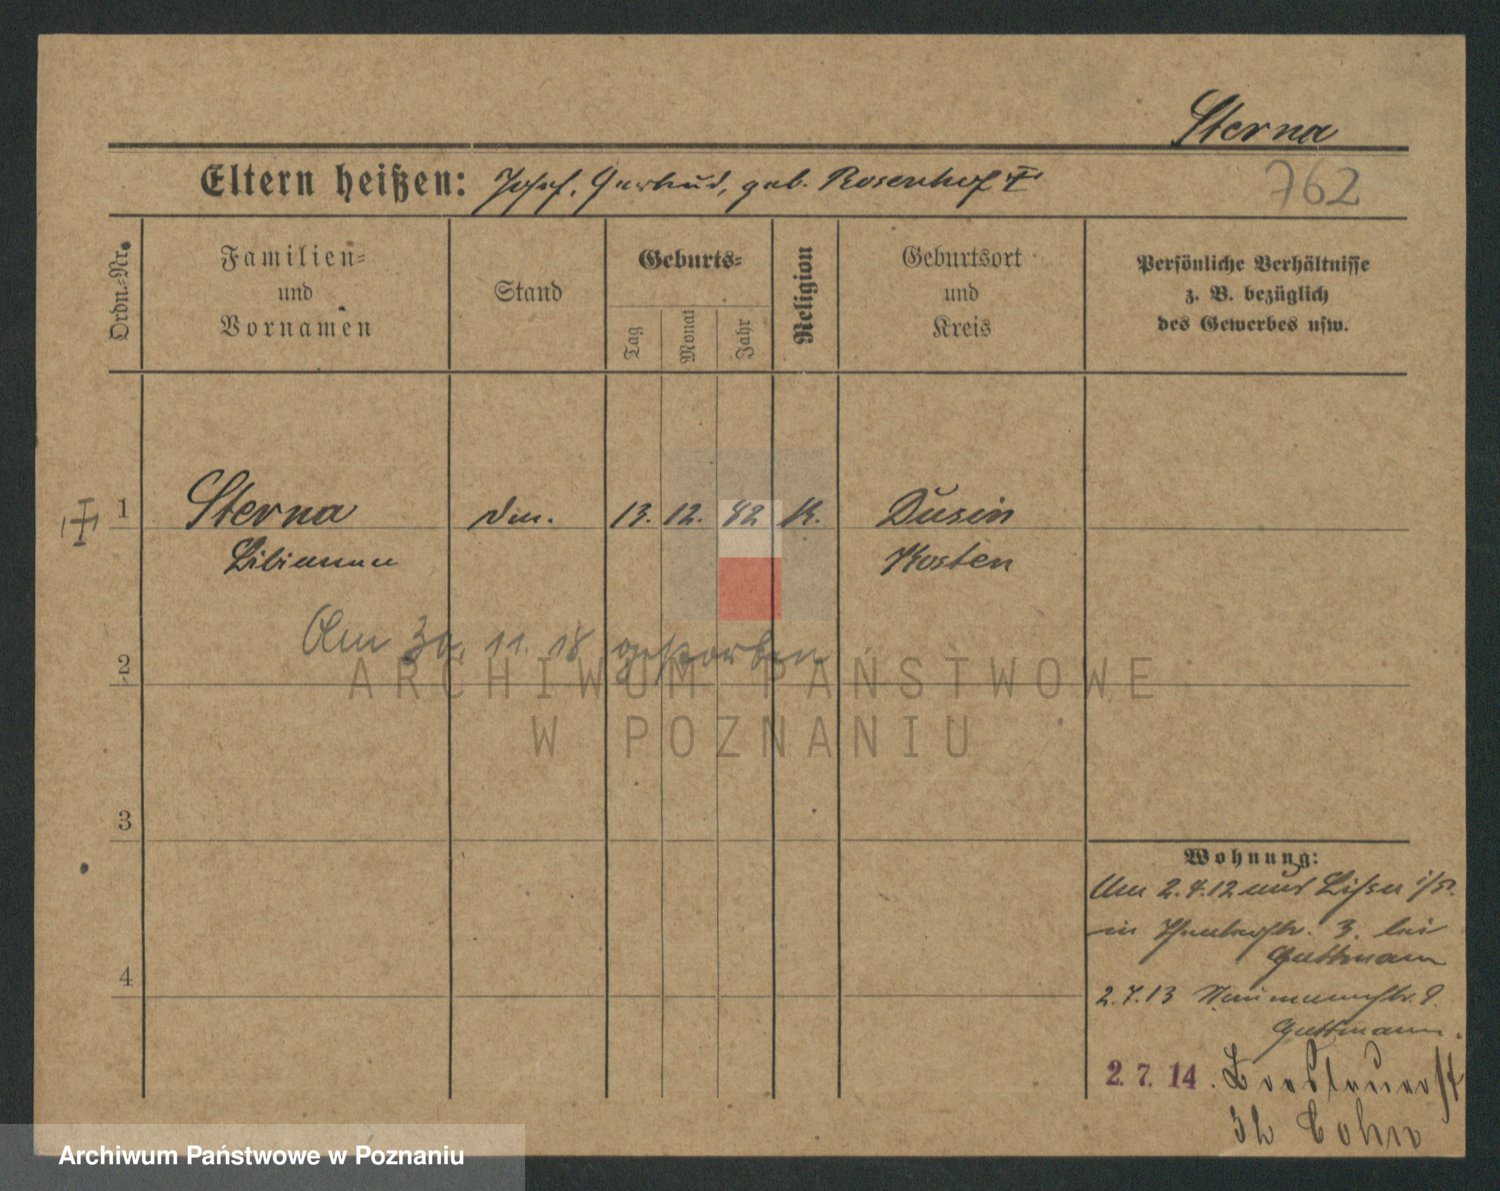 Sterna
Eltern heißen: Josef, Gertrud, geb. Rosenhof
762
Ordn.-Nr.
Familien=
und
Vornamen
Stand
Geburts=
Tag
Monat
Jahr
Religion
Geburtsort
und
Kreis
Persönliche Verhältnisse
z. B. bezüglich
des Gewerbes usw.
1 Sterna 13. 12. K. Dusin
Kosten
Am 30. 11. 18 gestorben
2
ARCHIWUM PAŃSTWOWE
W POZNANIU
3
Wohnung:
Am 2.4.12 aus Lissa i/P.
in 3. bei
Guttmann
4
2.4.13 Naumannstr. 9.
Guttmann.
2. 7. 14. Breslauerst
32 Cohn
Archiwum Państwowe w Poznaniu